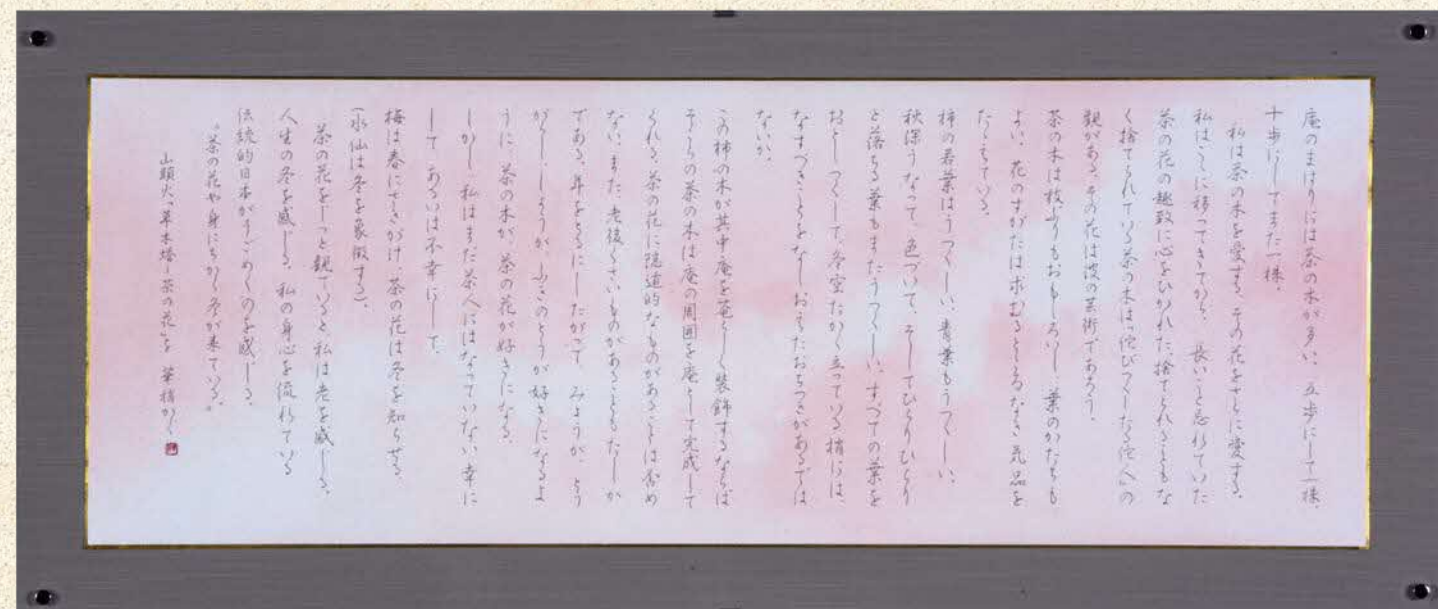 庵のまはりには茶の木が多い、五歩にして一株、
十歩にしてまた一株、
私は茶の木を愛する、その花をさらに愛する、
私はここに移つてきてから、長いこと忘れていた
茶の花の趣致に心をひかれた、捨てられるともな
く捨てられている茶の木は“佗びつくしたる佗人”の
観がある、その花は彼の芸術であらう、
茶の木は枝ぶりもおもしろいし、葉のかたちも
よい、花のすがたは求むるところなき気品を
たたえている、
柿の若葉はうつくしい、青葉もうつくしい、
秋深うなって、色づいて、そしてひらりひらり
と落ちる葉もまたうつくしい、すべての葉を
おとしつくして、冬空たかく立っている梢には
なすべきことをなしおえたおちつきがあるでは
ないか、
この柿の木が其中庵を庵らしく装飾するならば
そこらの茶の木は庵の周囲を庵として完成して
くれる、茶の花に隠遁的なものがあることは否め
ない、また、老後くさいものがあることもたしか
である、年をとるにしたがって、みようが、とう
がらし、しようが、ふきのとうが好きになるよ
うに、茶の木が、茶の花が好きになる、
しかし、私はまだ茶人にはなっていない、幸に
して、あるいは不幸にして、
梅は春にさきがけ、茶の花は冬を知らせる
(水仙は冬を象徴する)、
茶の花をじっと観ていると私は老を感じる、
人生の冬を感じる、私の身心を流れている
伝統的日本がうごめくのを感じる、
“茶の花や身にちかく冬が来ている”
山頭火“草木塔－茶の花”を 華梢かく